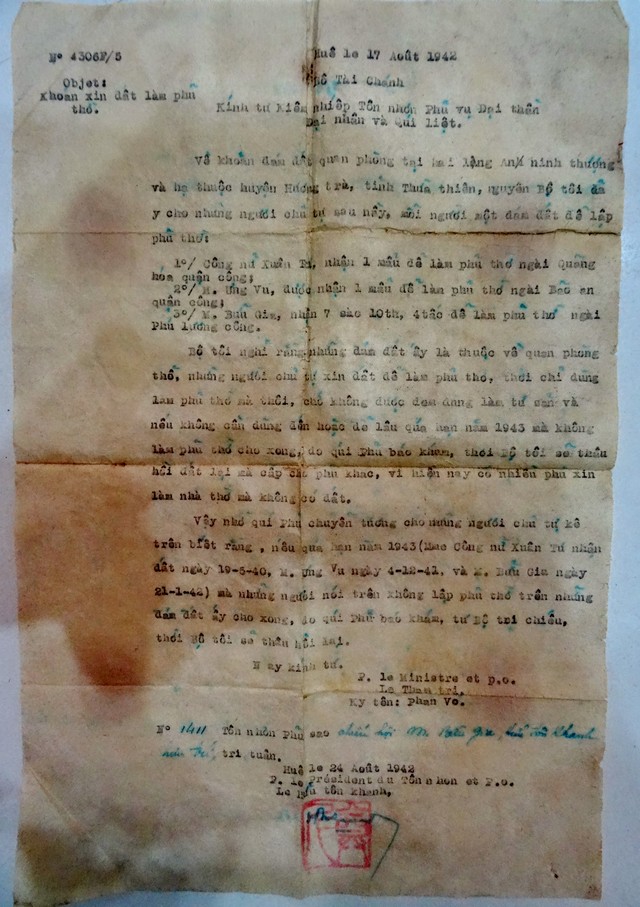 N° 4306F/5
Huê le 17 Août 1942
Objet:
Khoan xin đất làm phủ
thờ.
Bộ Tài Chánh
Kính tư Kiêm nhiếp Tôn nhơn Phủ vụ Đại thần
Đại nhân và quí liệt.
Về khoản đám đất quan phòng tại hai làng An ninh thượng
và hạ thuộc huyện Hương trà, tỉnh Thừa thiên, nguyên Bộ tôi đã
y cho những người chủ tự sau nầy, mỗi người một đám đất để lập
phủ thờ:
1°/ Công nữ Xuân Tư, nhận 1 mẫu để làm phủ thờ ngài Quảng
hóa quận công;
2°/ M. Ưng Vu, được nhận 1 mẫu để làm phủ thờ ngài Bảo an
quận công;
3°/ M. Bửu Gia, nhận 7 sào 10th, 4tấc để làm phủ thờ ngài
Phú lương công.
Bộ tôi nghĩ rằng những đám đất ấy là thuộc về quan phòng
thổ, những người chủ tự xin đất để làm phủ thờ, thời chỉ dùng
làm phủ thờ mà thôi, chớ không được đem dùng làm tư sản và
nếu không cần dùng đến hoặc để lâu quá hạn năm 1943 mà không
làm phủ thờ cho xong, do quí Phủ báo khám, thời Bộ tôi sẽ thâu
hồi đất lại mà cấp cho phủ khác, vì hiện nay có nhiều phủ xin
làm nhà thờ mà không có đất.
Vậy nhờ quí Phủ chuyển tường cho những người chủ tự kể
trên biết rằng, nếu quá hạn năm 1943(Mme Công nữ Xuân Tư nhận
đất ngày 19-5-40, M. Ưng Vu ngày 4-12-41, và M. Bửu Gia ngày
21-1-42) mà những người nói trên không lập phủ thờ trên những
đám đất ấy cho xong, do quí Phủ báo khám, tư Bộ tri chiếu,
thời Bộ tôi sẽ thâu hồi lại.
Nay kính tư.
P. le Ministre et p.o.
Le Tham tri,
Ký tên: Phan Vo.
N° 1411 Tôn nhơn Phủ sao
tri tuân.
Huê le 24 Août 1942
P. le Président du Tôn nhơn et P.o.
Le Tôn khanh,